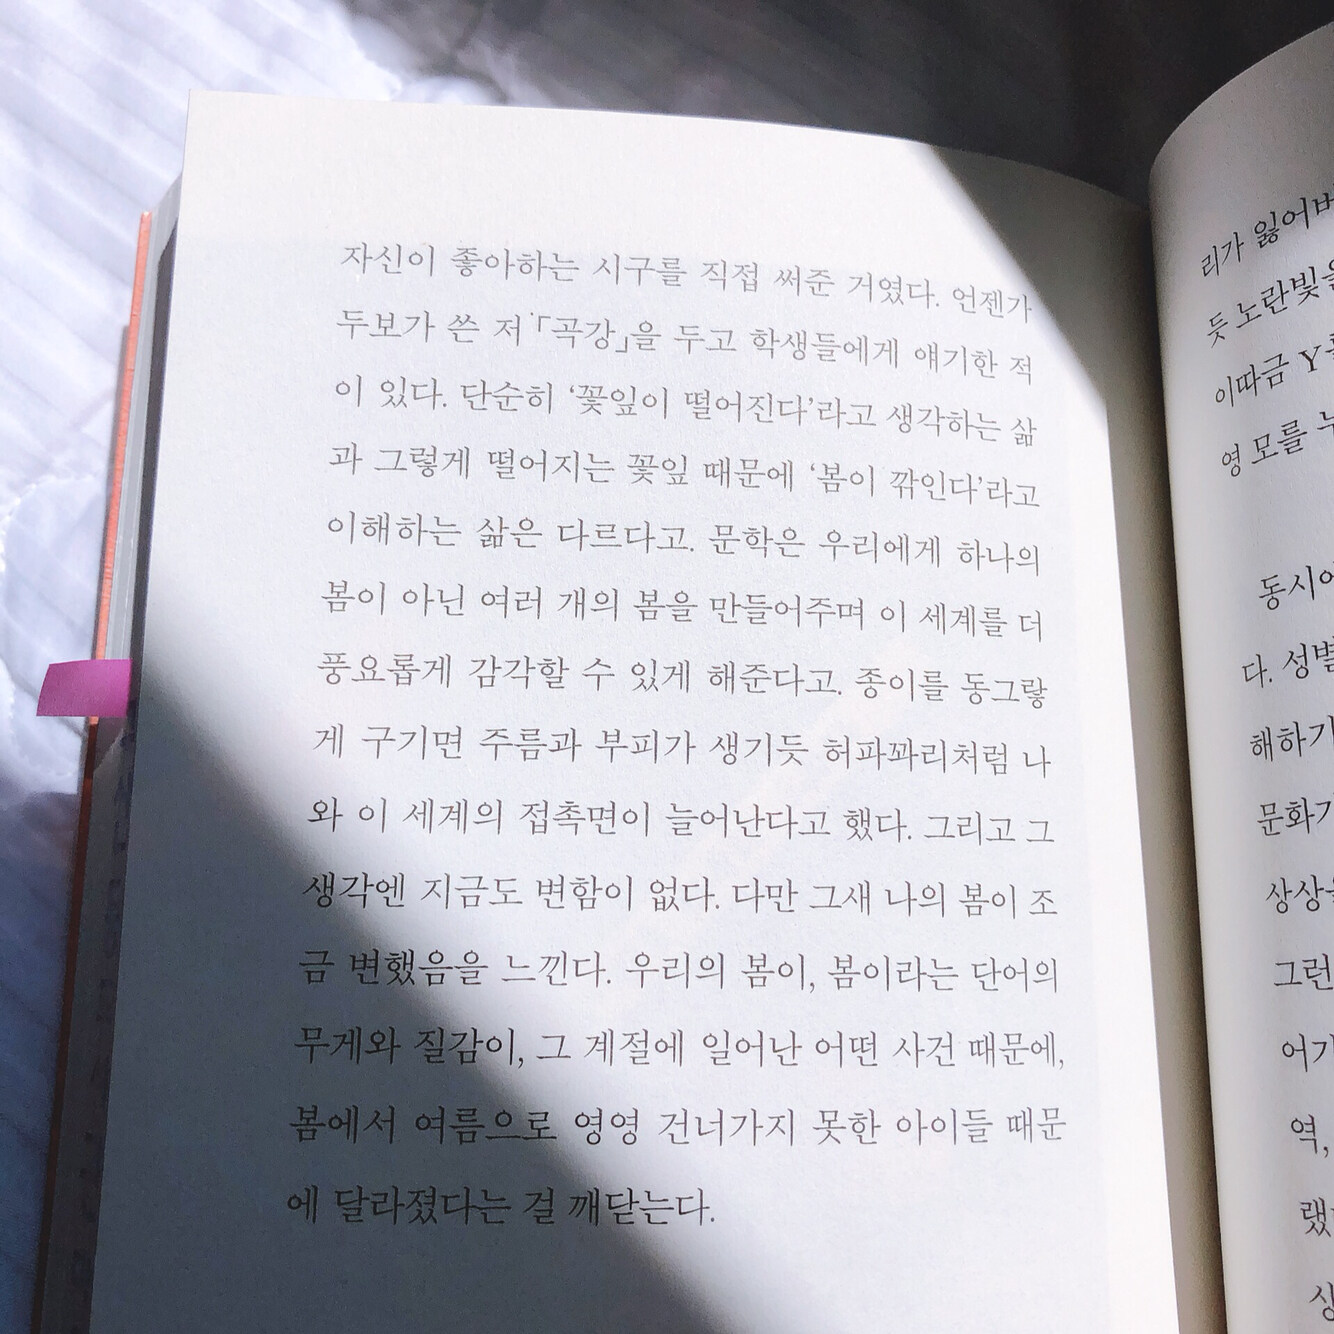 자신이 좋아하는 시구를 직접 써준 거였다. 언젠가
두보가 쓴 저 「곡강」을 두고 학생들에게 얘기한 적
이 있다. 단순히 ‘꽃잎이 떨어진다’라고 생각하는 삶
과 그렇게 떨어지는 꽃잎 때문에 ‘봄이 깎인다’라고
이해하는 삶은 다르다고. 문학은 우리에게 하나의
봄이 아닌 여러 개의 봄을 만들어주며 이 세계를 더
풍요롭게 감각할 수 있게 해준다고. 종이를 동그랗
게 구기면 주름과 부피가 생기듯 허파꽈리처럼 나
와 이 세계의 접촉면이 늘어난다고 했다. 그리고 그
생각엔 지금도 변함이 없다. 다만 그새 나의 봄이 조
금 변했음을 느낀다. 우리의 봄이, 봄이라는 단어의
무게와 질감이, 그 계절에 일어난 어떤 사건 때문에,
봄에서 여름으로 영영 건너가지 못한 아이들 때문
에 달라졌다는 걸 깨닫는다.
리가
듯 노란빛을
이따금 Y
영모를
동시에
다.
해하기
문화
상상
그런
역,